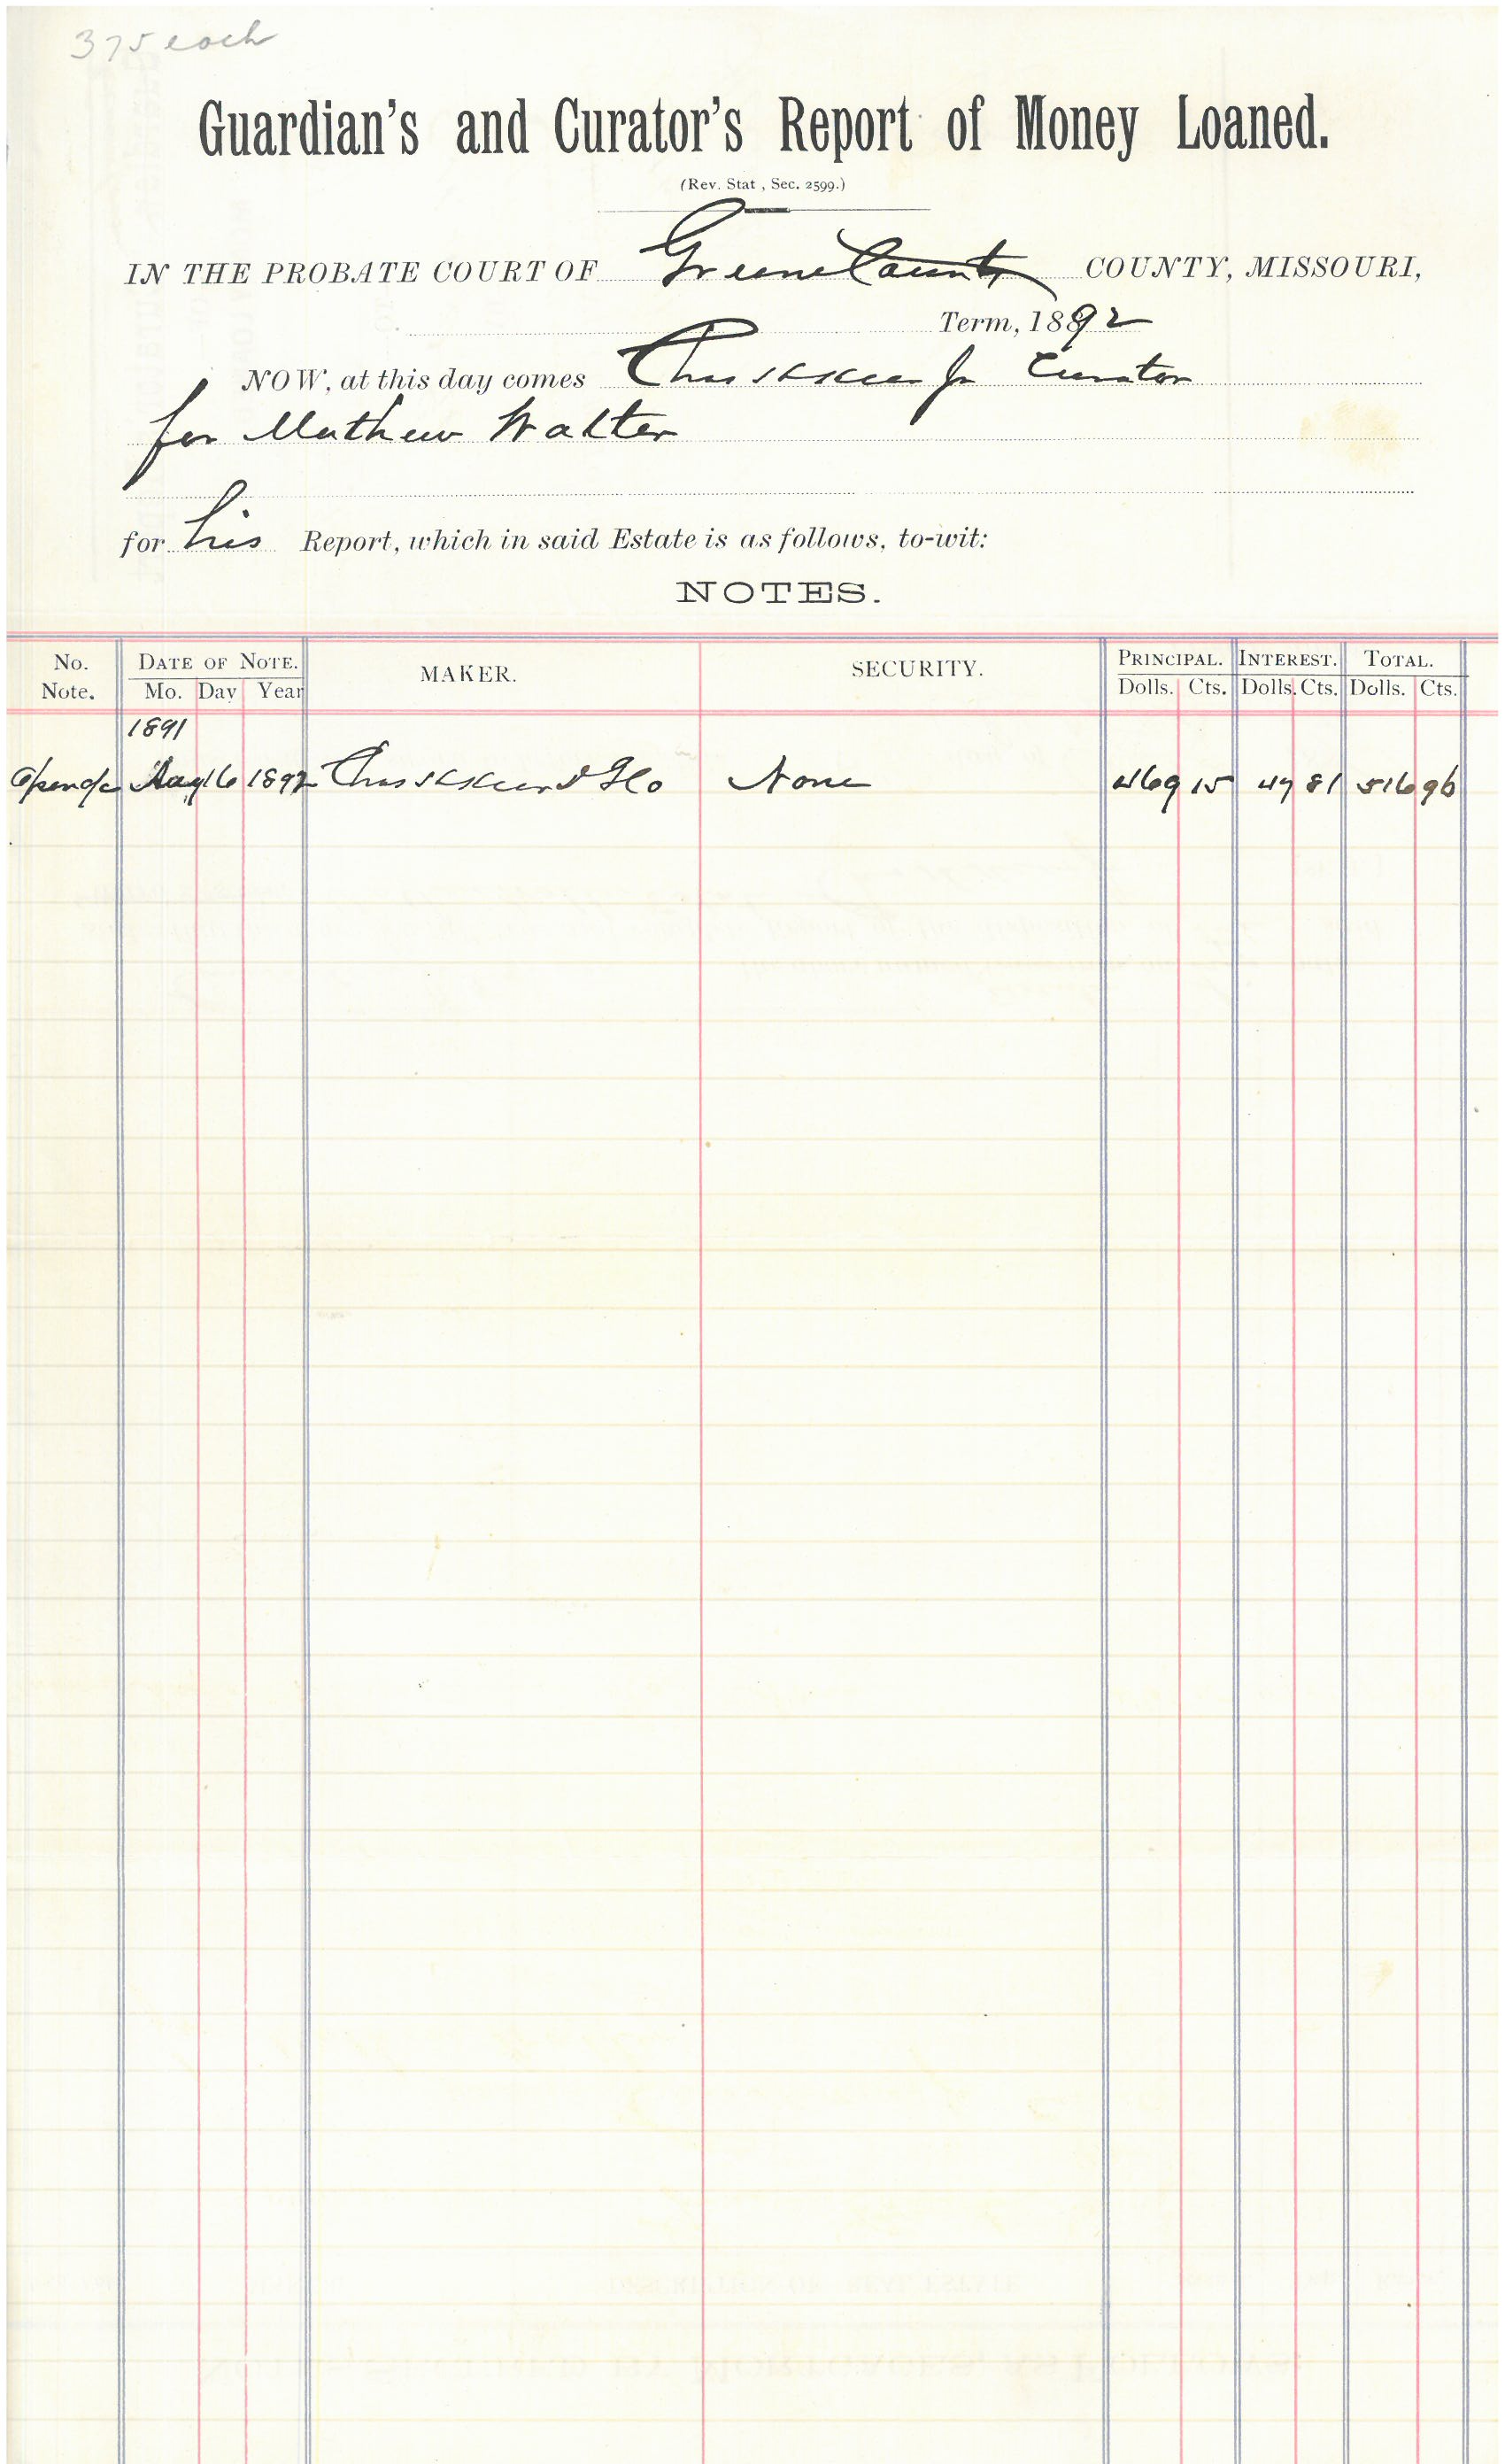 375 each
Guardian's and Curator's Report of Money Loaned.
(Rev. Stat , Sec. 2599.)
IN THE PROBATE COURT OF Greene County COUNTY, MISSOURI,
Term, 1892
NOW, at this day comes Chas Jr Curator
for Mathew Walter
for his Report, which in said Estate is as follows, to-wit:
NOTES.
No. Note. DATE OF NOTE. Mo. Day Year MAKER. SECURITY. PRINCIPAL. Dolls. Cts. INTEREST. Dolls. Cts. TOTAL. Dolls. Cts.
1891
May 16 1892 Chas None 469 15 47 81 516 96